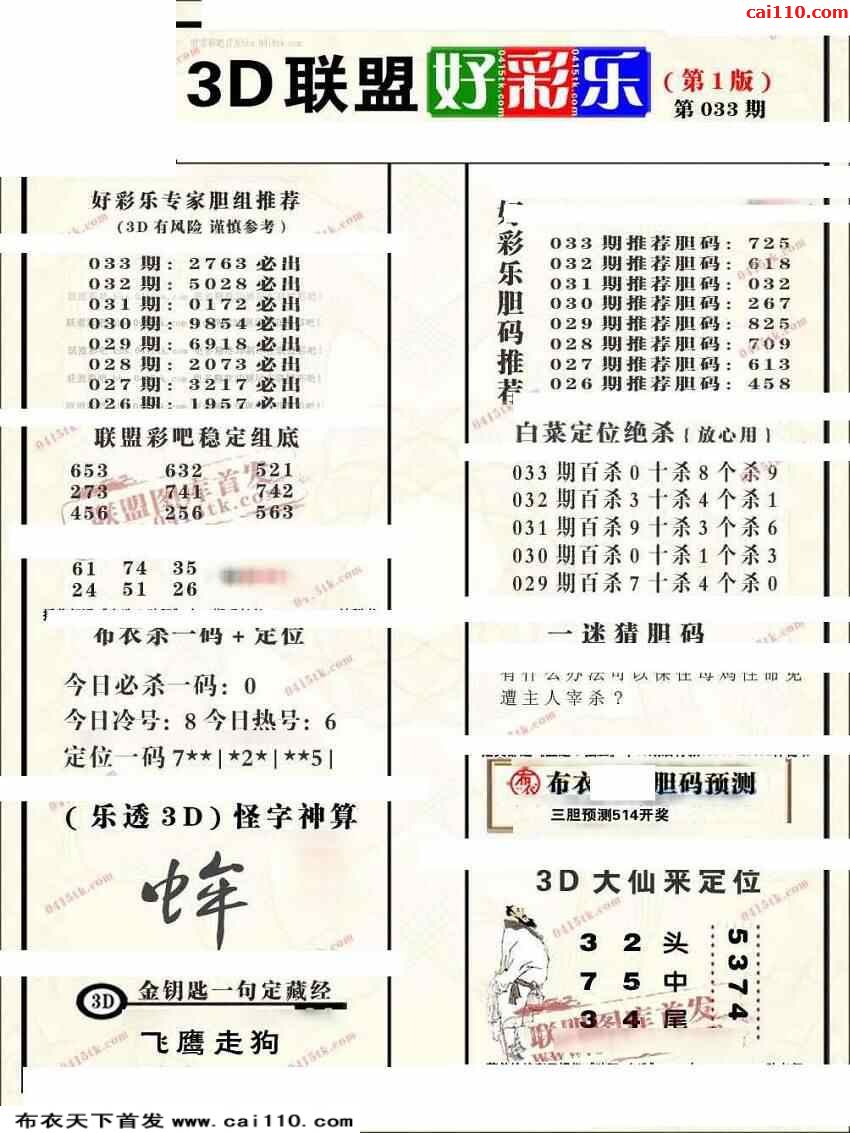 cai110.com
3D联盟好彩乐
0415tk.com 0415tk.com 0415tk.com
(第1版)
第033期
好彩乐专家胆组推荐
(3D有风险 谨慎参考)
033期: 2763必出
032期: 5028必出
031期: 0172必出
030期: 9854必出
029期: 6918必出
028期: 2073必出
027期: 3217必出
026期: 1957必出
联盟彩吧稳定组底
653 632 521
273 741 742
456 256 563
联盟图库首发
61 74 35
24 51 26
布衣杀一码+定位
今日必杀一码: 0
今日冷号: 8 今日热号: 6
定位一码 7**|*2*|**5|
(乐透3D)怪字神算
3D 金钥匙一句定藏经
飞鹰走狗
好彩乐胆码推荐
033期推荐胆码: 725
032期推荐胆码: 618
031期推荐胆码: 032
030期推荐胆码: 267
029期推荐胆码: 825
028期推荐胆码: 709
027期推荐胆码: 613
026期推荐胆码: 458
白菜定位绝杀{放心用}
033期百杀0十杀8个杀9
032期百杀3十杀4个杀1
031期百杀9十杀3个杀6
030期百杀0十杀1个杀3
029期百杀7十杀4个杀0
一迷猜胆码
有什么办法可以保住母鸡性命免
遭主人宰杀?
布衣 布衣 胆码预测
三胆预测514开奖
3D大仙来定位
3 2 头
7 5 中
3 4 尾
5374
联盟图库首发
0415tk.com
布衣天下首发 www.cai110.com